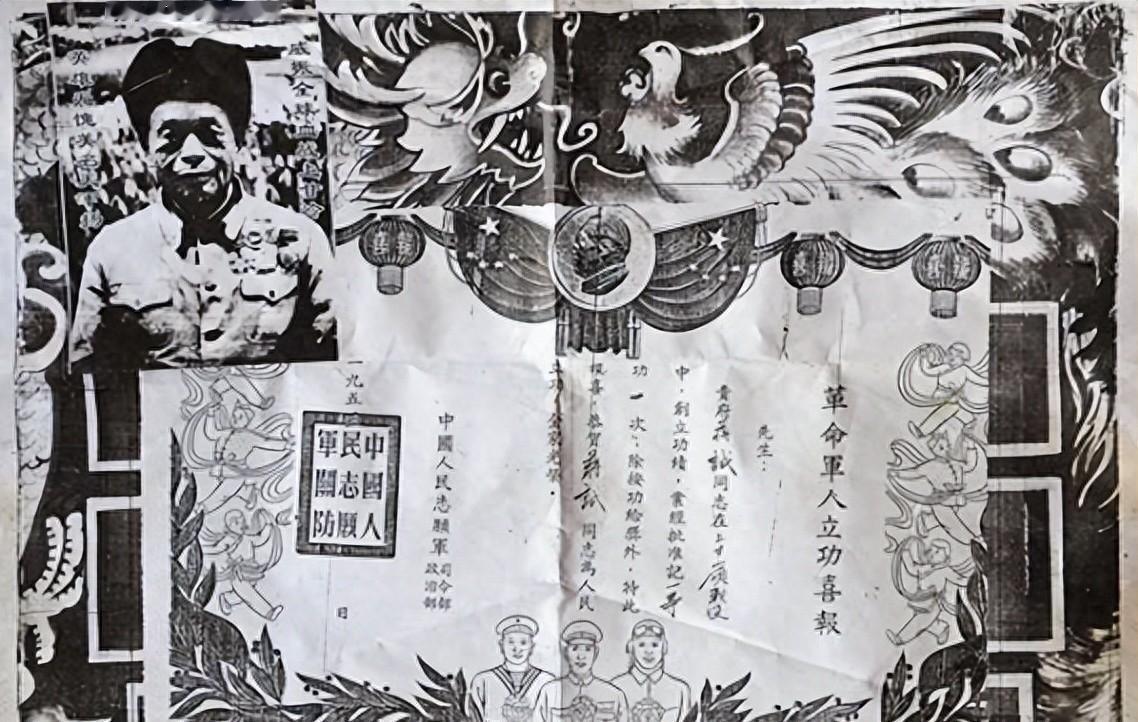 威振全球血戰上甘嶺
英雄愧美名
革命軍人立功喜報
先生：
貴府蔣誠同志在上甘嶺戰役
中，創立功績，業經批准記一等
功一次，除按功給獎外，特此
報喜，恭賀蔣誠同志為人民
立功，全家光榮。
中國人民志願軍
司令部
政治部
九五 日
中國人
民志願
軍關防